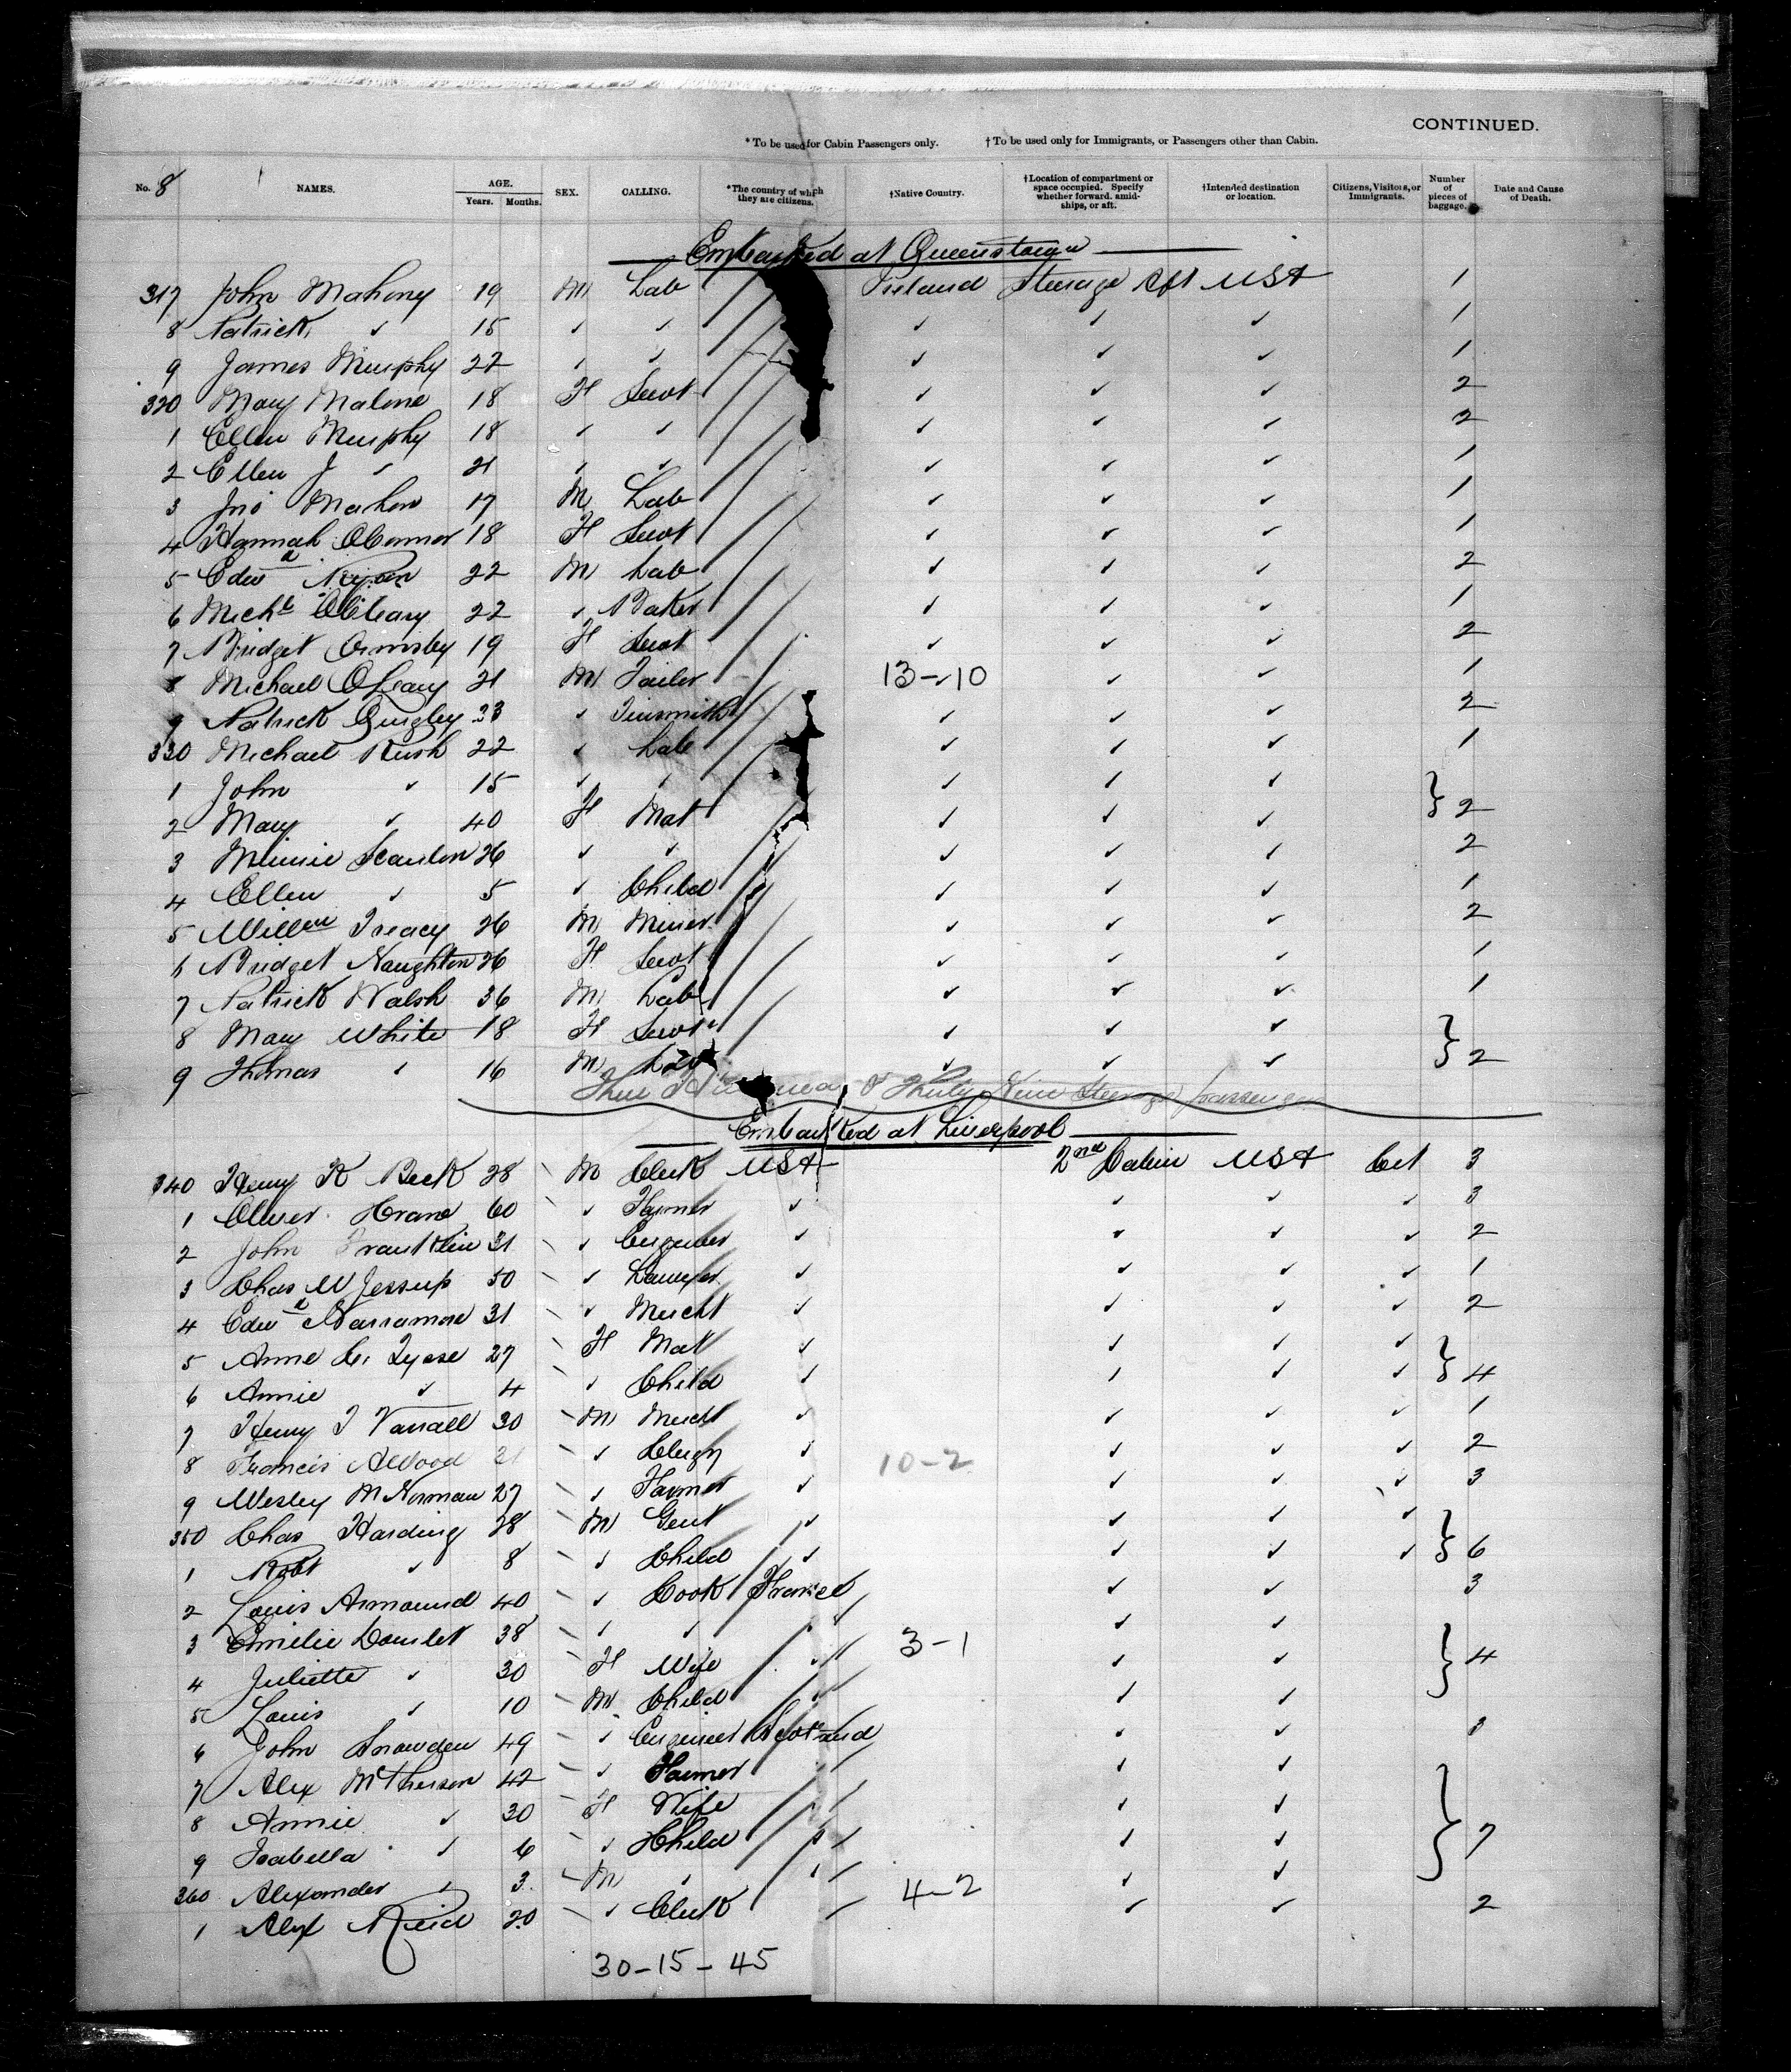 CONTINUED.
* To be used for Cabin Passengers only. † To be used only for Immigrants, or Passengers other than Cabin.
No. 8 NAMES. AGE. Years. Months. SEX. CALLING. *The country of which they are citizens. †Native Country. †Location of compartment or space occupied. Specify whether forward, amidships, or aft. †Intended destination or location. Citizens, Visitors, or Immigrants. Number of pieces of baggage. Date and Cause of Death.
Embarked at Queenstown
317 John Mahony 19 M Lab Ireland Steerage Aft USA 1
8 Patrick ✓ 15 ✓ ✓ ✓ ✓ ✓ 1
9 James Murphy 22 ✓ ✓ ✓ ✓ ✓ 1
320 Mary Malone 18 F Servt ✓ ✓ ✓ 2
1 Ellen Murphy 18 ✓ ✓ ✓ ✓ ✓ 2
2 Ellen J ✓ 21 ✓ ✓ ✓ ✓ ✓ 1
3 Jno Mahon 17 M Lab ✓ ✓ ✓ 1
4 Hannah OConnor 18 F Servt ✓ ✓ ✓ 1
5 Edwd 22 M Lab ✓ ✓ ✓ 2
6 Michl OLeary 22 ✓ Baker ✓ ✓ ✓ 1
7 Bridget Ormsby 19 F Servt ✓ ✓ ✓ 2
8 Michael OLeary 21 M Tailor 13-10 ✓ ✓ 1
9 Patrick Quigley 33 ✓ Tinsmith ✓ ✓ ✓ 2
330 Michael Rush 22 ✓ Lab ✓ ✓ ✓ 1
1 John ✓ 15 ✓ ✓ ✓ ✓ ✓
2 Mary ✓ 40 F Mat ✓ ✓ ✓ } 2
3 Minnie Scanlon 26 ✓ ✓ ✓ ✓ ✓ 2
4 Ellen ✓ 5 ✓ Child ✓ ✓ ✓ 1
5 Willm Treacy 26 M Miner ✓ ✓ ✓ 2
6 Bridget Naughton 26 F Servt ✓ ✓ ✓ 1
7 Patrick Walsh 36 M Lab ✓ ✓ ✓ 1
8 Mary White 18 F Servt ✓ ✓ ✓
9 Thomas ✓ 16 M Lab ✓ ✓ ✓ } 2
Three & Thirty Nine Steerage passengers
Embarked at Liverpool
340 Henry K Beck 28 M Clerk USA 2nd Cabin USA Cit 3
1 Oliver Crane 60 ✓ Farmer ✓ ✓ ✓ ✓ 3
2 John Franklin 31 ✓ Engineer ✓ ✓ ✓ ✓ 2
3 Chas W Jessup 50 ✓ Lawyer ✓ ✓ ✓ ✓ 1
4 Edwd Narramore 31 ✓ Mercht ✓ ✓ ✓ ✓ 2
5 Anne C. 27 F Mat ✓ ✓ ✓ ✓
6 Annie ✓ 4 ✓ Child ✓ ✓ ✓ ✓ } 4
7 Henry J 30 M Mercht ✓ ✓ ✓ ✓ 1
8 Francis AWood 31 ✓ Clergy ✓ 10-2 ✓ ✓ ✓ 2
9 Wesley M Norman 27 ✓ Farmer ✓ ✓ ✓ ✓ 3
350 Chas Harding 28 M Gent ✓ ✓ ✓ ✓
1 Robt ✓ 8 ✓ Child ✓ ✓ ✓ ✓ } 6
2 Louis Armound 40 ✓ Cook France ✓ ✓ 3
3 Emilie 38 ✓ ✓ ✓ 3-1 ✓ ✓
4 Juliette ✓ 30 F Wife ✓ ✓ ✓ } 4
5 Louis ✓ 10 M Child ✓ ✓ ✓
6 John Snowden 49 ✓ Engineer Scotland ✓ ✓ 1
7 Alex McPherson 42 ✓ Farmer ✓ ✓
8 Annie ✓ 30 F Wife ✓ ✓ ✓
9 Isabella ✓ 6 ✓ Child ✓ ✓ ✓ } 7
360 Alexander ✓ 3 M ✓ ✓ 4-2 ✓ ✓
1 Alex Reid 20 ✓ Clerk ✓ ✓ 2
30-15-45